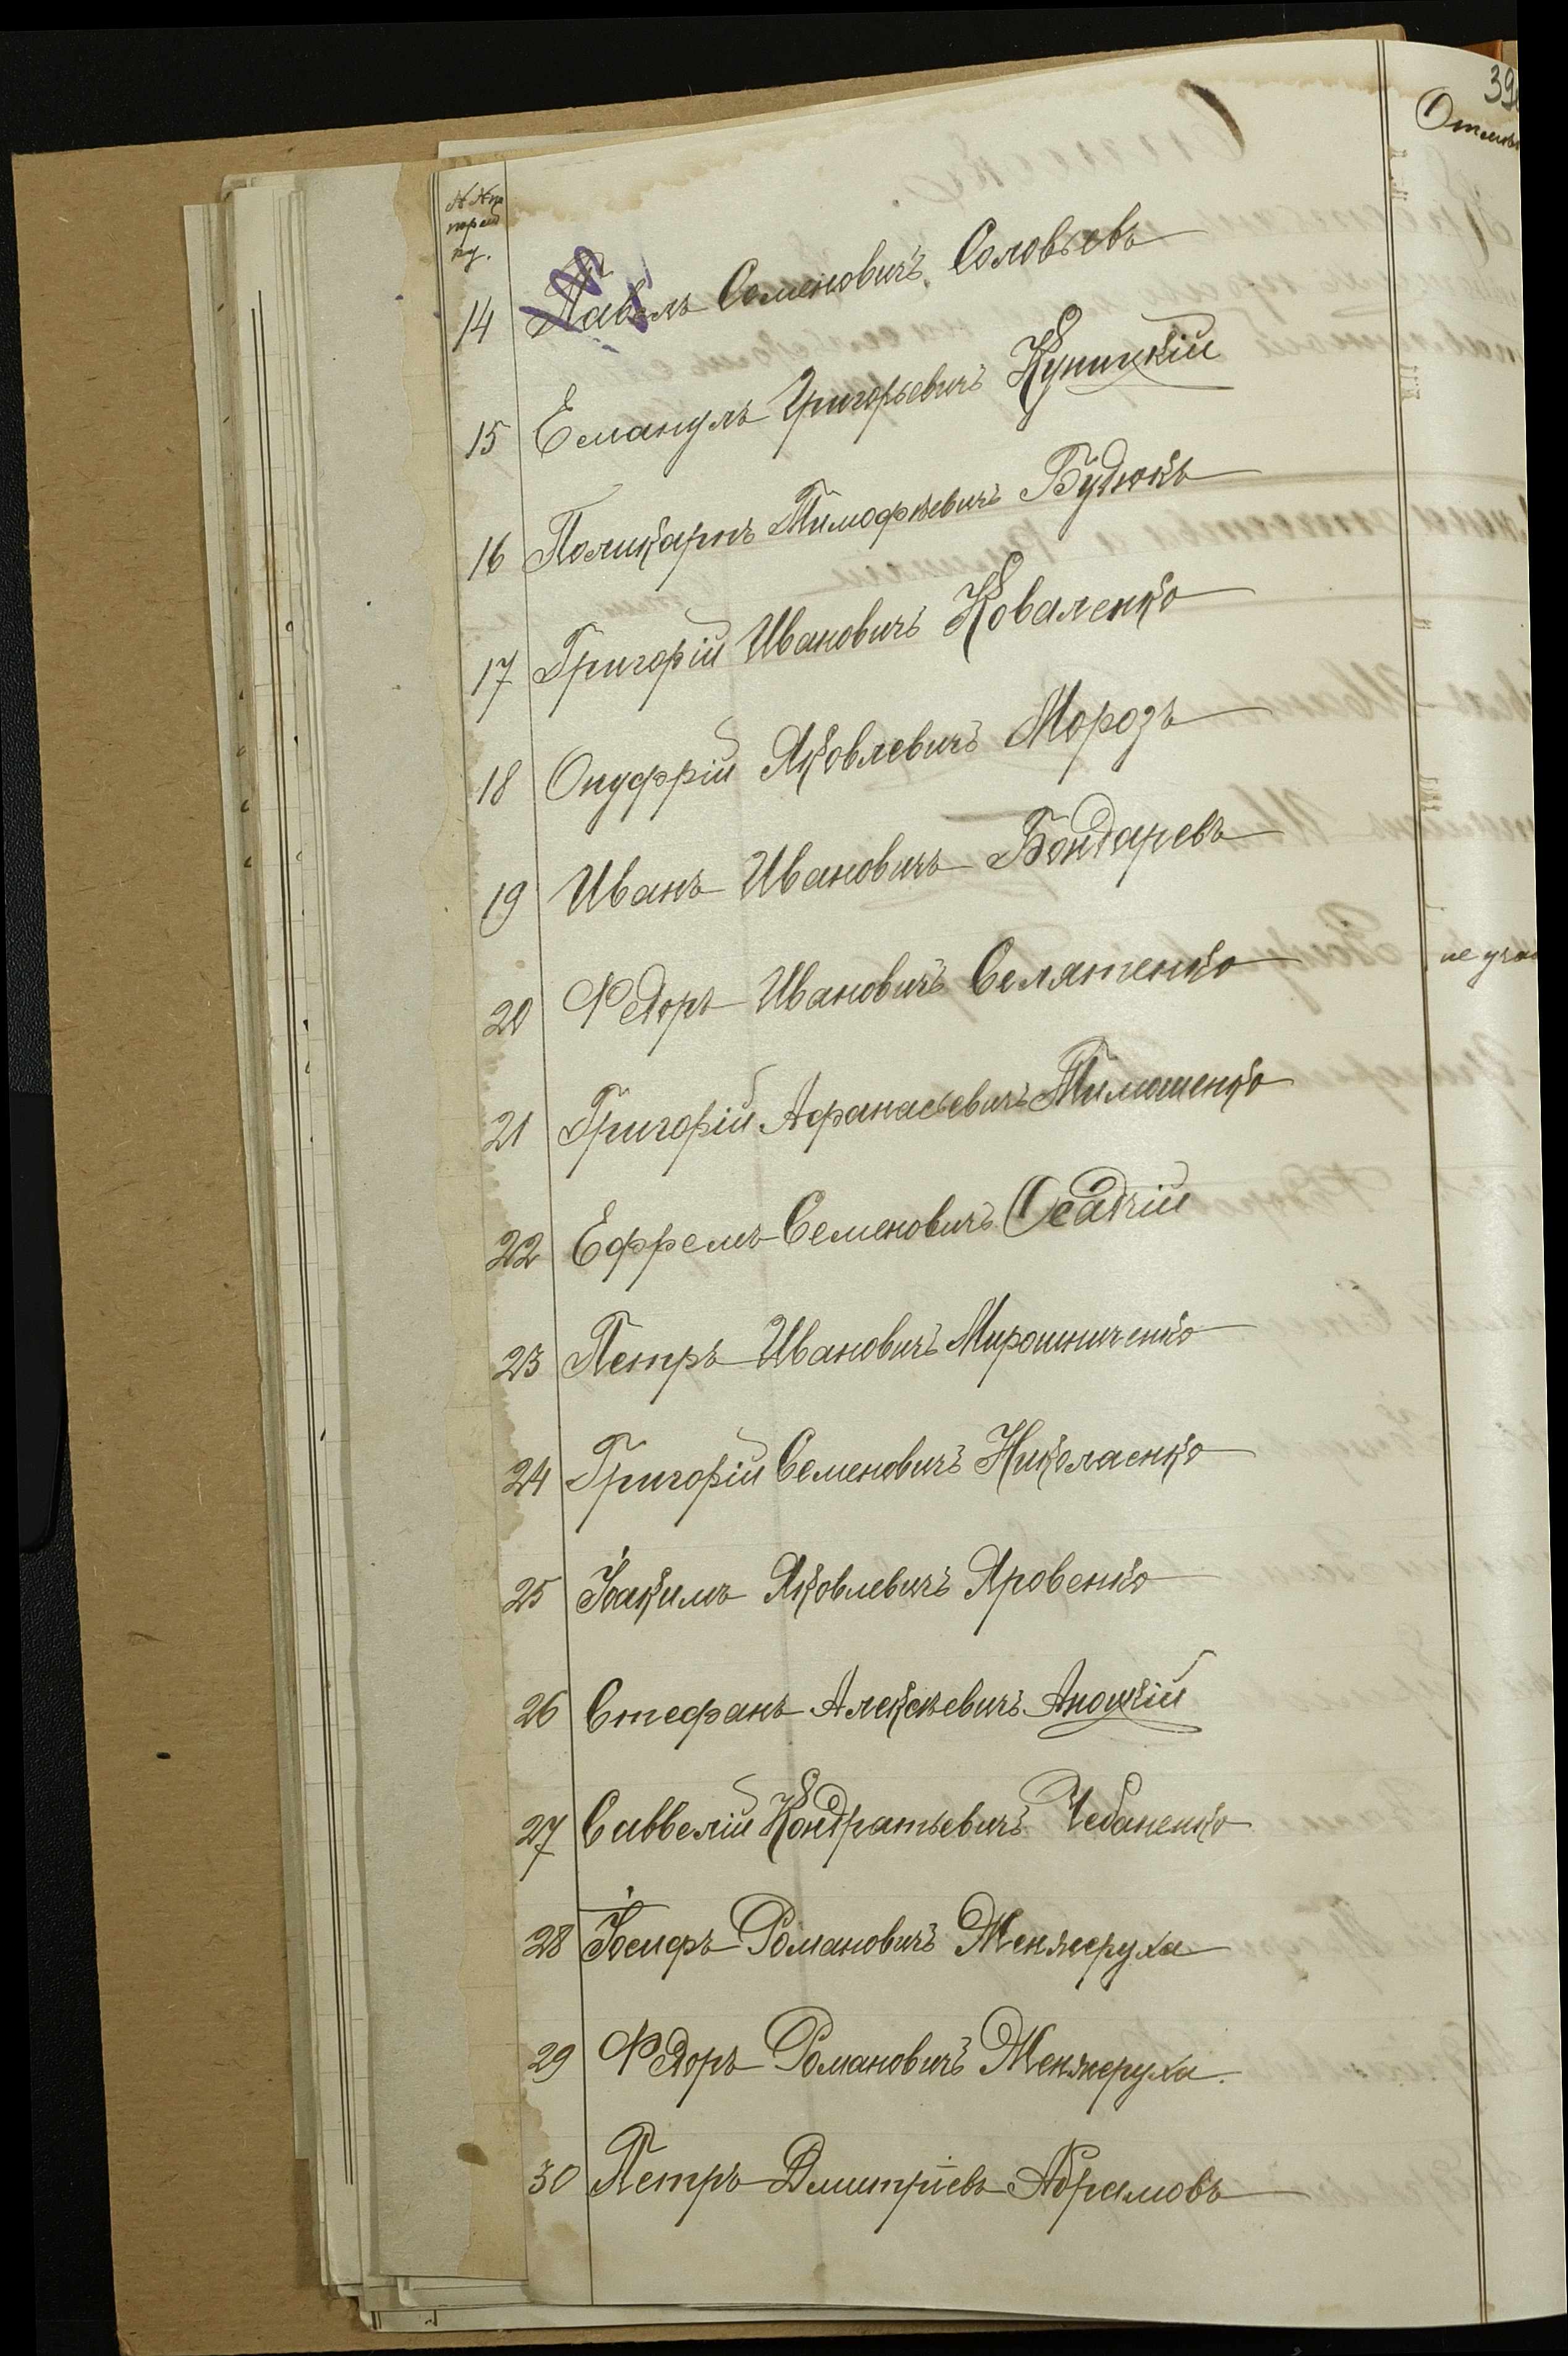 39
№№ по
поряд
ку.
14 Павелъ Семеновичъ Соловьевъ
15 Емануилъ Григорьевичъ Куницкій
16 Поликарпъ Тимофѣевичъ Будюкъ
17 Григорій Ивановичъ Коваленко
18 Онуфрій Яковлевичъ Морозъ
19 Иванъ Ивановичъ Бондаревъ
20 Федоръ Ивановичъ Селятенко
21 Григорій Афанасьевичъ Тимошенко
22 Ефремъ Семеновичъ Осадчій
23 Петръ Ивановичъ Мирошниченко
24 Григорій Семеновичъ Николаенко
25 Іоакимъ Яковлевичъ Яровенко
26 Стефанъ Алексѣевичъ Аноцкій
27 Саввелій Кондратьевичъ Чебаненко
28 Іосифъ Романовичъ Женжеруха
29 Федоръ Романовичъ Женжеруха.
30 Петръ Дмитріевъ Абрамовъ